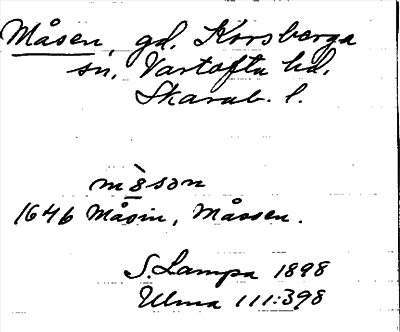 Måsen, gd. Korsberga
sn, Vartofta hd,
Skarab. l.
mòson
1646 Måsin, Måssen.
S. Lampa 1898
Ulma 111:398